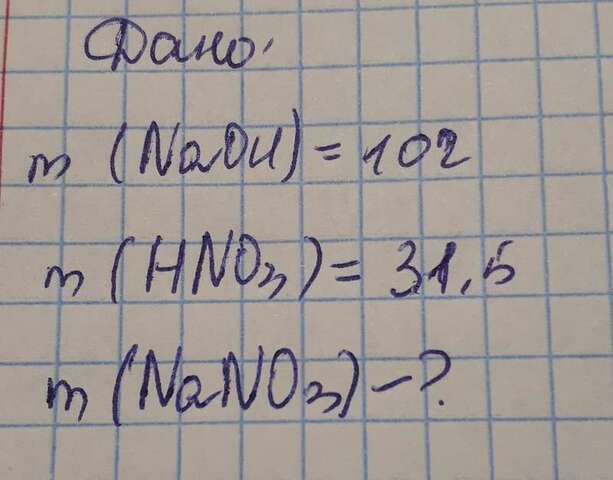 Дано:
m (NaOH) = 10г
m (HNO₃) = 31,5
m (NaNO₃) – ?